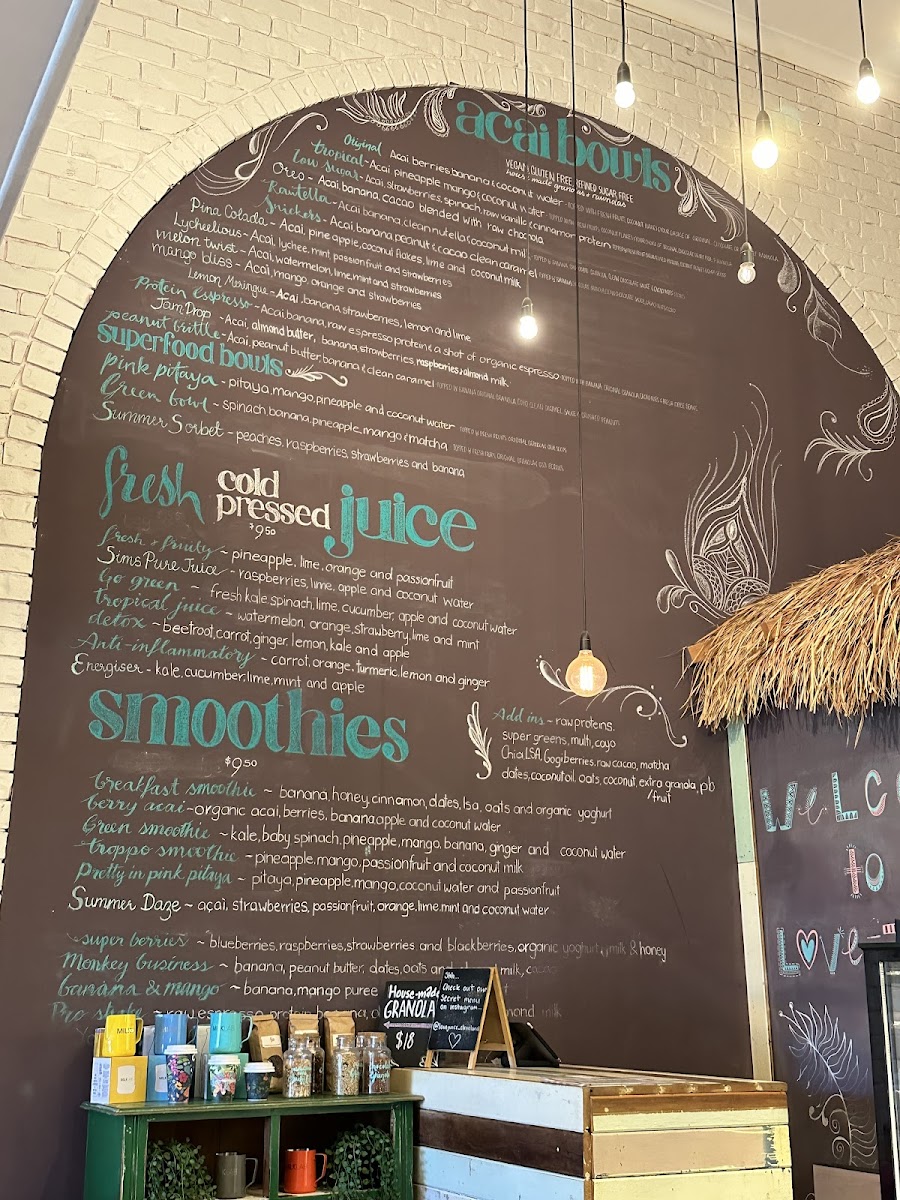 acai bowls
VEGAN GLUTEN FREE REFINED SUGAR FREE
Original Acai berries, banana & coconut water
tropical - Acai pineapple mango & coconut water
Low Sugar - Acai, strawberries, spinach, raw vanilla & cinnamon protein
Oreo - Acai, banana, cacao blended with raw chocola
Rawtella - Acai banana clean nutella & coconut mil
Snickers - Acai banana, peanut & cacao clean caramel
Pina Colada - Acai, pineapple, coconut flakes, lime and coconut milk
Lycheelious - Acai, lychee, mint passion fruit and strawberries
melon twist - Acai, watermelon, lime, mint and strawberries
mango bliss - Acai, mango, orange and strawberries
Lemon Meringue - Acai, banana strawberries, lemon and lime
Protein Espresso - Acai banana, raw espresso protein & a shot of organic espresso
Jam Drop - Acai, almond butter, banana, strawberries, raspberries, almond milk
peanut brittle - Acai, peanut butter, banana & clean caramel
superfood bowls
Pink pitaya - pitaya, mango, pineapple and coconut water
Green bowl - spinach, banana, pineapple, mango & matcha
Summer Sorbet - peaches, raspberries, strawberries and banana
fresh cold pressed juice
$9.50
fresh + fruity ~ pineapple, lime, orange and passionfruit
Sims Pure Juice - raspberries, lime, apple and coconut water
Go green ~ fresh kale spinach, lime, cucumber, apple and coconut water
tropical juice ~ watermelon, orange, strawberry, lime and mint
detox ~ beetroot, carrot, ginger, lemon, kale and apple
Anti-inflammatory ~ carrot, orange, turmeric, lemon and ginger
Energiser - kale, cucumber, lime, mint and apple
smoothies
$9.50
Add ins ~ raw proteins,
super greens, multi, coyo
Chia, LSA, Gogi berries, raw cacao, matcha
dates, coconut oil, oats, coconut, extra granola, pb
/fruit
breakfast smoothie ~ banana, honey, cinnamon, dates, lsa, oats and organic yoghurt
berry acai - organic acai, berries, banana, apple and coconut water
Green smoothie ~ kale, baby spinach, pineapple, mango, banana, ginger and coconut water
troppo smoothie - pineapple, mango, passionfruit and coconut milk
Pretty in pink pitaya ~ pitaya, pineapple, mango, coconut water and passionfruit
Summer Daze ~ açai, strawberries, passionfruit, orange, lime, mint and coconut water
super berries ~ blueberries, raspberries, strawberries and blackberries, organic yoghurt, milk & honey
Monkey business ~ banana, peanut butter, dates, oats and milk,
banana & mango ~ banana, mango puree
Pro ~ raw espresso protein, banana, mond milk
House-made
GRANOLA
$18
Check out our
Secret menu
on instagram...
WeLCO
to
LOVe